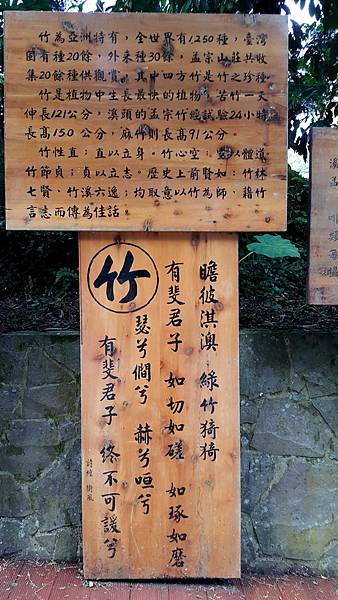 竹為亞洲特有，全世界有1,250種，臺灣
固有種20餘，外來種30餘，孟宗山莊共收
集20餘種供觀賞。其中四方竹是竹之珍種。
竹是植物中生長最快的植物，苦竹一天
伸長121公分，溪頭的孟宗竹經試驗24小時
長高150公分，麻竹則長高91公分。
竹性直；直以立身。竹心空；空以體道
竹節貞；貞以立志。歷史上前賢如：竹林
七賢、竹溪六逸；均取意以竹為師，藉竹
言志而傳為佳話。
竹
瞻彼淇澳 綠竹猗猗
有斐君子 如切如磋 如琢如磨
瑟兮僩兮 赫兮咺兮
有斐君子 終不可諼兮
詩經 衛風
溪
孟